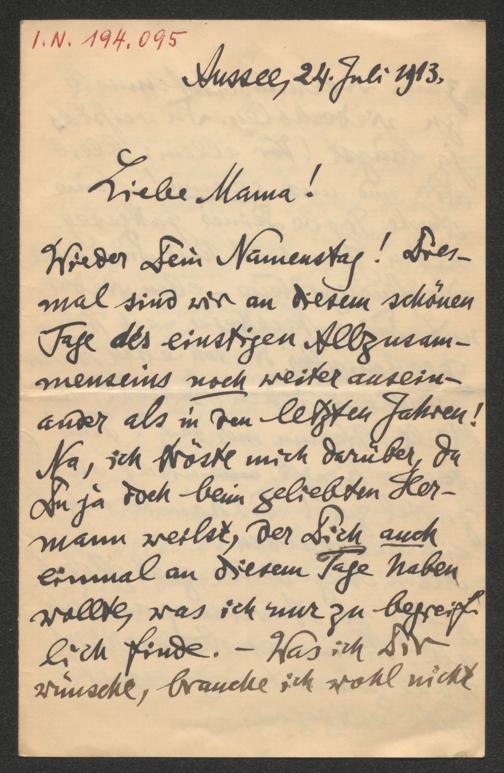 I.N. 194.095
Aussee, 24. Juli 1913.
Liebe Mama!
Wieder Dein Namenstag! Dies-
mal sind wir an diesem schönen
Tage des einstigen Allbzusam-
menseins noch weiter ausein-
ander als in den letzten Jahren!
Na, ich tröste mich darüber, da
Du ja doch beim geliebten Her-
mann weilst, der Dich auch
einmal an diesem Tage haben
wollte, was ich nur zu begreif-
lich finde. – Was ich Dir
wünsche, brauche ich wohl nicht